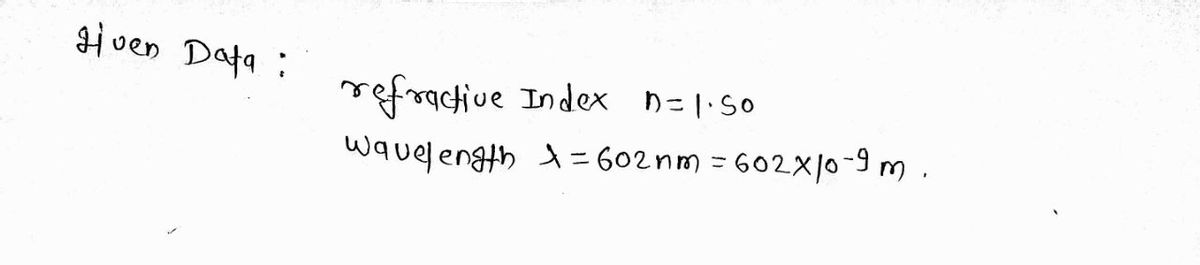 Given Data :
refractive Index n=1.50
wavelength λ = 602nm = 602×10-9 m .